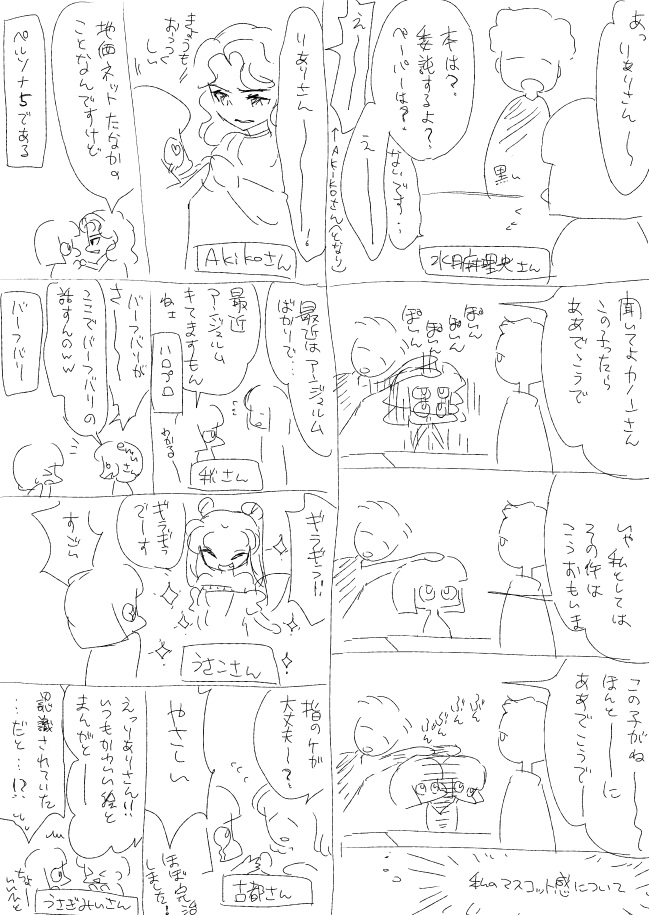 あっ
りありさん――〜
本は?
委託するよ?
ペーパーは?
ないです…
え――
え――
←AKIKOさん(となり)
黒い
水月麻理央さん
りありさん――!
きょうも
おうつくしい
Akikoさん
地西ネットたなかの
ことなんですけど
ペルソナ5である
聞いてよカノーンさん
この子ったら
ああでこうで
ぽいん
ぽいん
ぽいん
ぽいん
いや 私としては
その件は
こうおもいま
この子がね――
ほんと――に
ああでこうで――
ぶん
ぶん
ぶん
ぶん
私のマスコット感について
最近はアンジュルム
ばかりで…
最近
アンジュルム
キてますもん
ねェ
ハロプロ
わかる〜
秋さん
バーフバリが
さ――
ここでバーフバリの
話すんのww
emuさん
バーフバリ
ギラギラっ!!
ギラギラ
でーす
すごい
うさこさん
指のケガ
大丈夫〜?
やさしい
ほぼ完治
しました!
古都さん
えっりありさん!!
いつもかわいい絵と
まんがと――
認識されていた
…だと…!?
うさぎみいさん